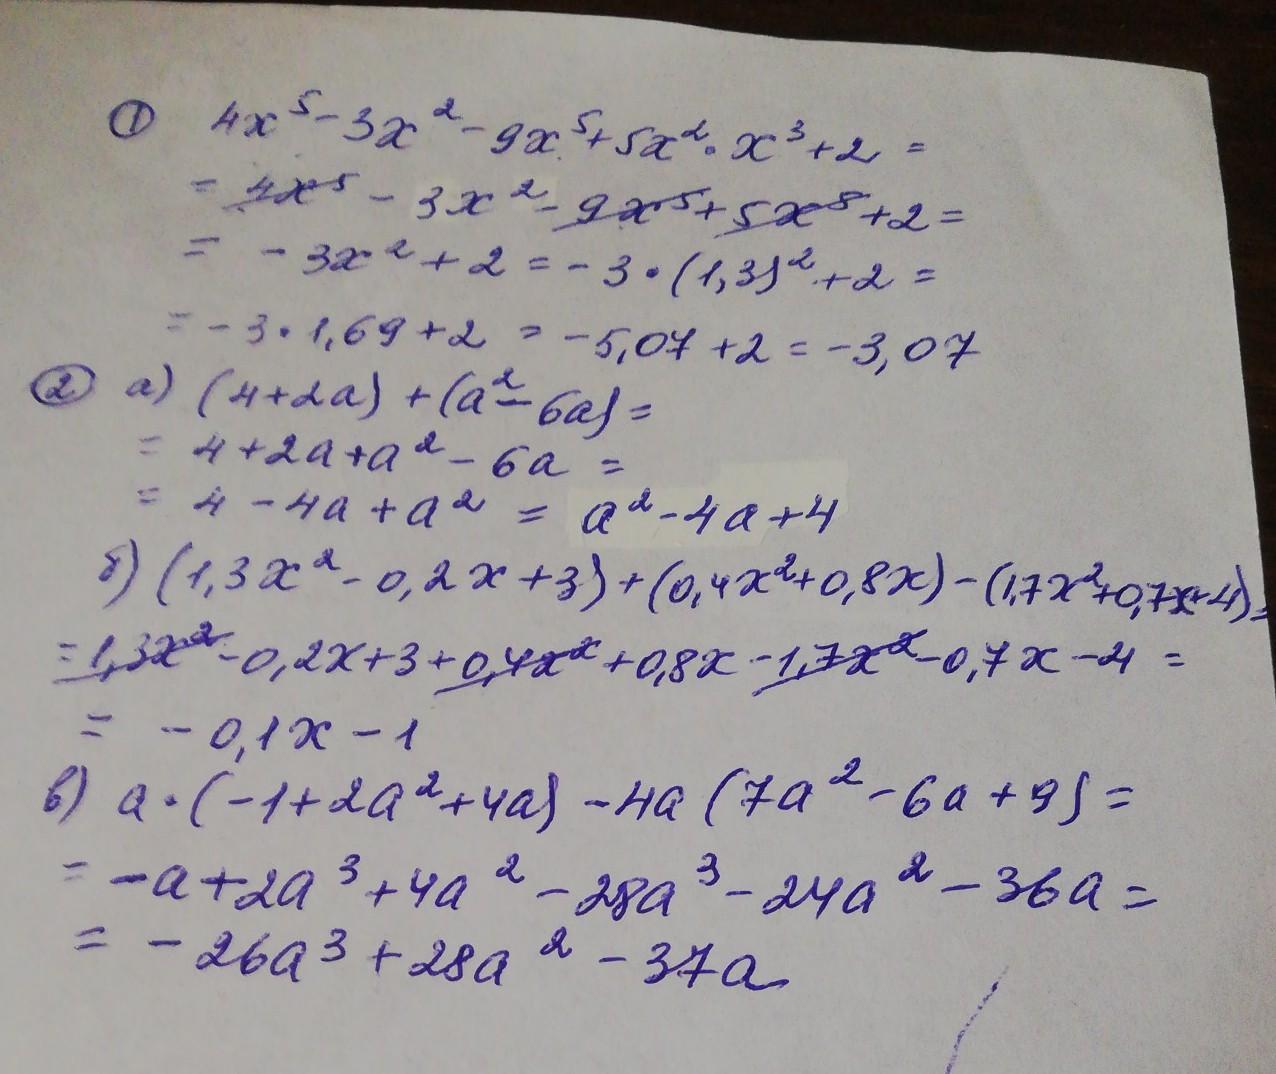 ① 4x⁵ - 3x² - 9x⁵ + 5x² · x³ + 2 =
= 4x⁵ - 3x² - 9x⁵ + 5x⁸ + 2 =
= - 3x² + 2 = - 3 · (1,3)² + 2 =
= - 3 · 1,69 + 2 = - 5,07 + 2 = - 3,07
② а) (4 + 2a) + (a² - 6a) =
= 4 + 2a + a² - 6a =
= 4 - 4a + a² = a² - 4a + 4
б) (1,3x² - 0,2x + 3) + (0,4x² + 0,8x) - (1,7x² + 0,7x + 4) =
= 1,3x² - 0,2x + 3 + 0,4x² + 0,8x - 1,7x² - 0,7x - 4 =
= - 0,1x - 1
в) a · (-1 + 2a² + 4a) - 4a (7a² - 6a + 9) =
= - a + 2a³ + 4a² - 28a³ - 24a² - 36a =
= - 26a³ + 28a² - 37a